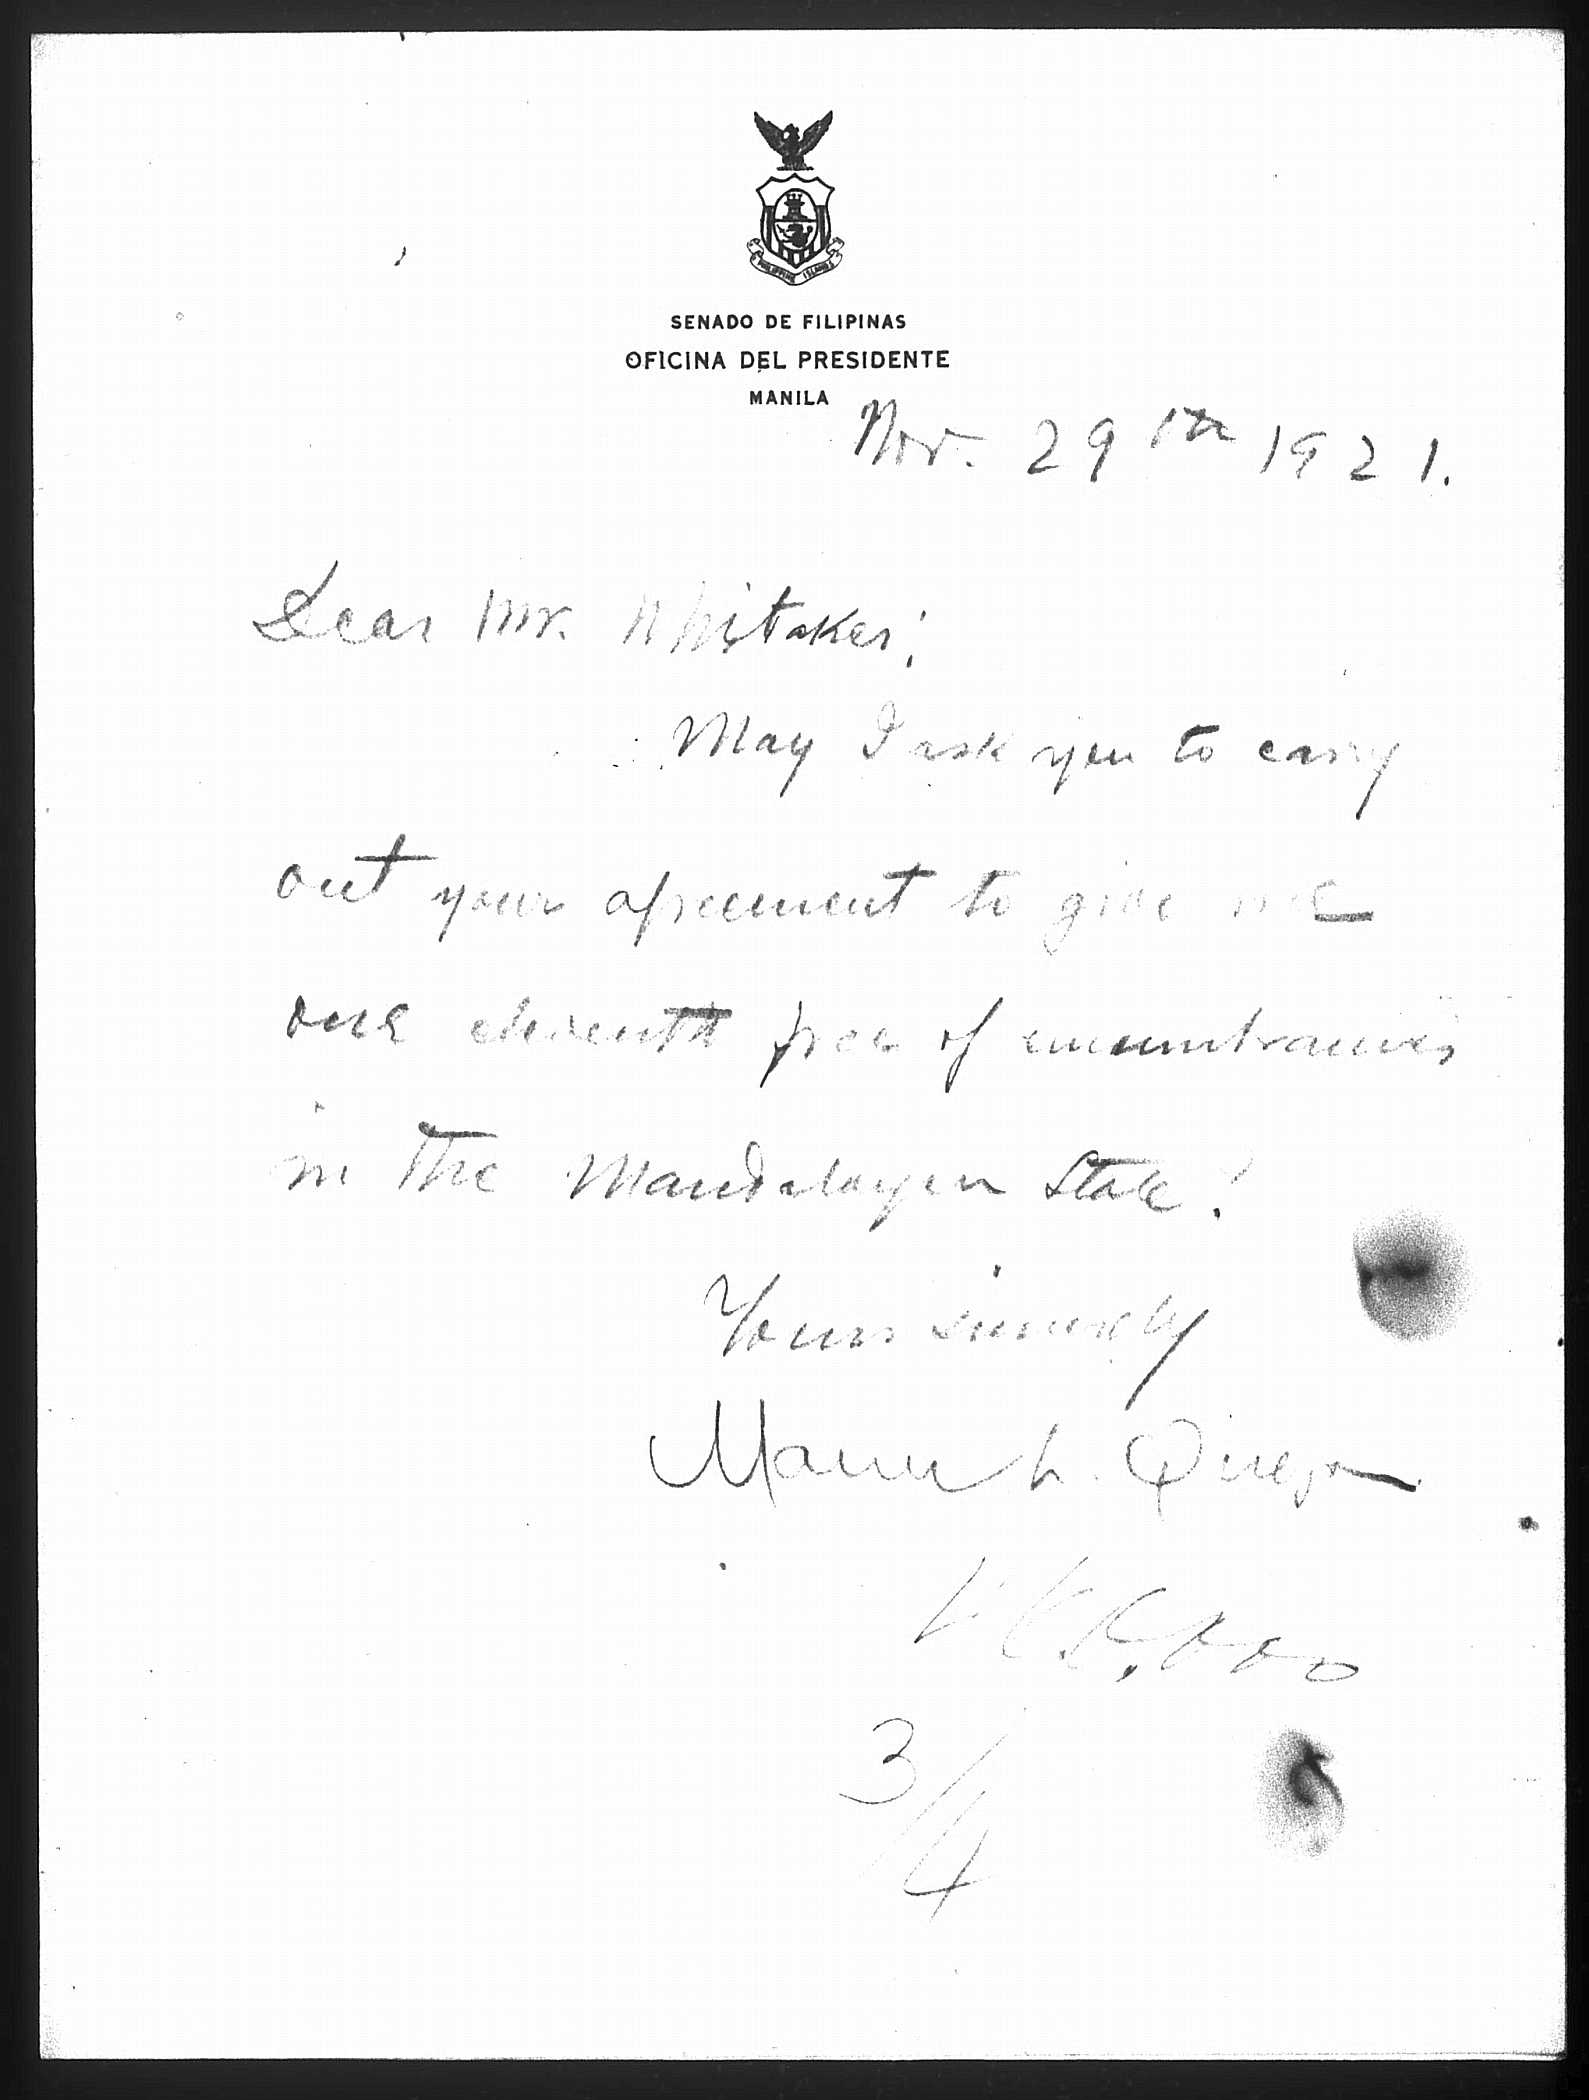 PHILIPPINE ISLANDS
SENADO DE FILIPINAS
OFICINA DEL PRESIDENTE
MANILA
Nov. 29th 1921.
Dear Mr. Whitaker:
May I ask you to carry
out your agreement to give me
one eleventh free of encumbrances
in the Mandaloyon State?
Yours sincerely
Manuel L. Quezon
3/4